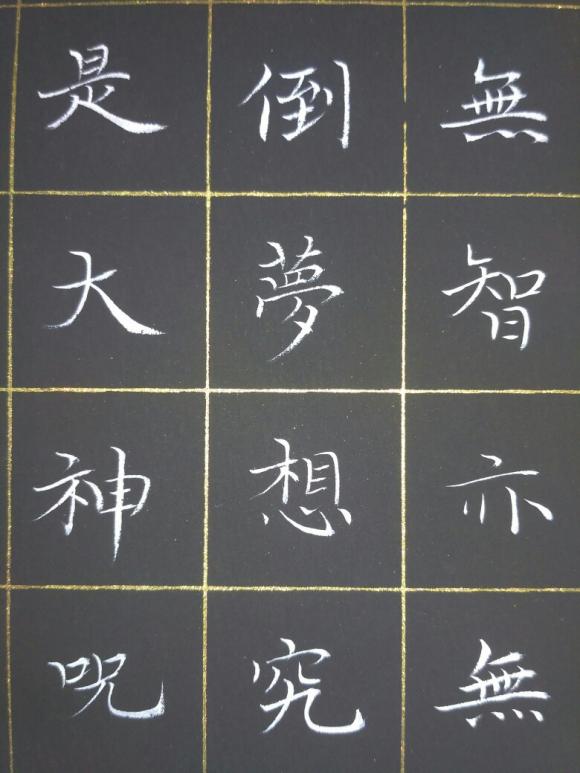 無智亦無
倒夢想究
是大神呪